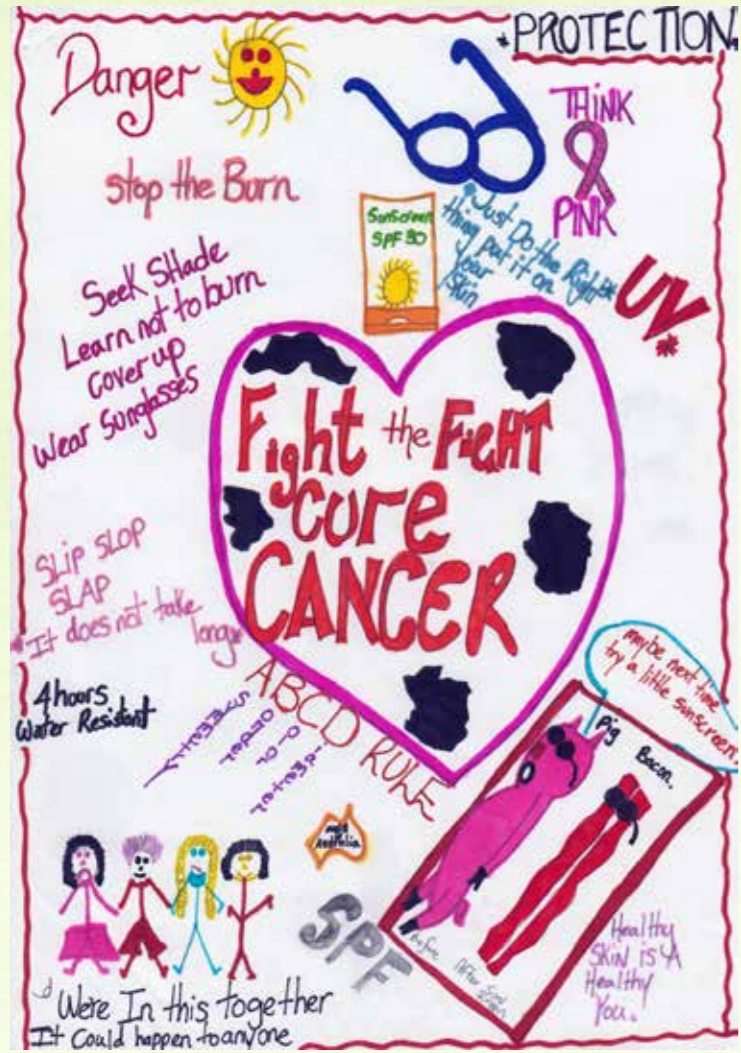 Danger
*PROTECTION.
THiNK
PINK
stop the Burn
SunScreen
SPF 30
*Just Do the Right*
thing put it on
Your
Skin
UV*
Seek SHade
Learn not to burn
cover up
Wear Sunglasses
Fight the FiGHT
cure
CANCER
SLiP SLOP
SLAP
*It does not take
long*
4 hours
Water Resistant
ABCD RULE
maybe next time
try a little sunscreen.
Pig
Bacon.
Australia
SPF
Before
After
Healthy
SKiN iS A
Healthy
You.
Were In this together
It Could happen to anyone